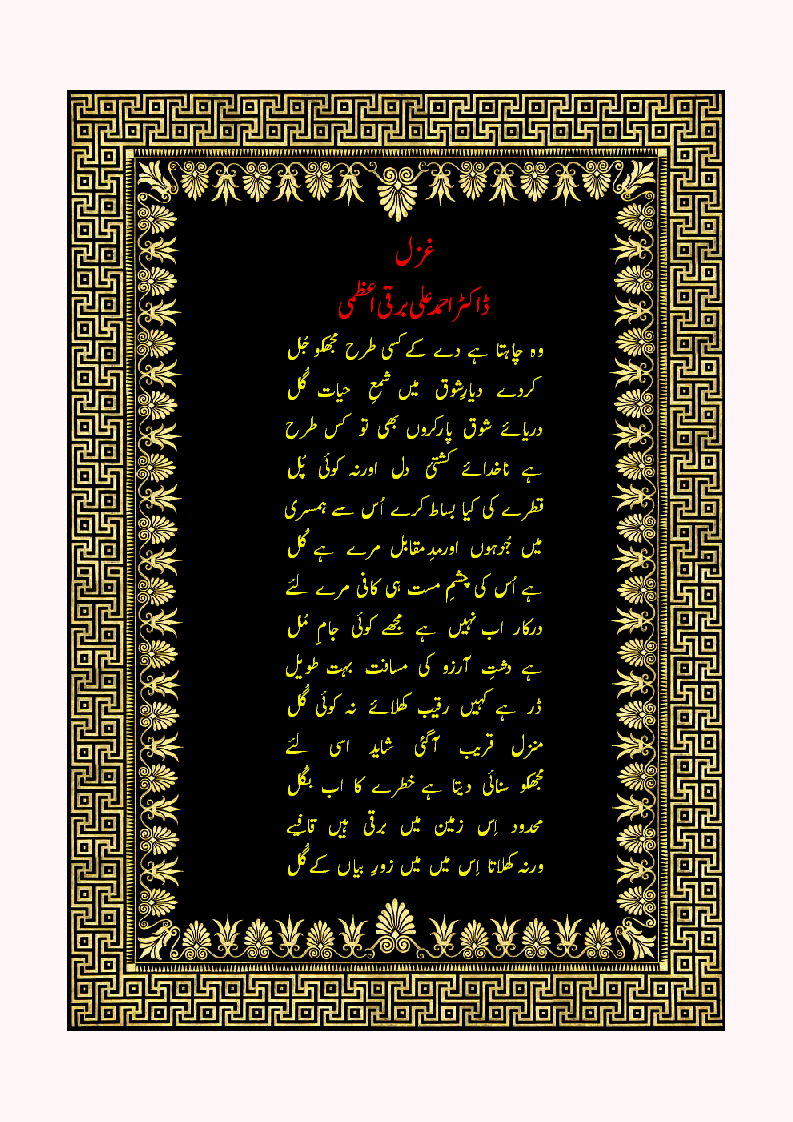 غزل
ڈاکٹر احمد علی برقی اعظمی
وہ چاہتا ہے دے کے کسی طرح مجھکو جُل
کردے دیارِشوق میں شمعِ حیات گُل
دریائے شوق پارکروں بھی تو کس طرح
ہے ناخدائے کشتئ دل اورنہ کوئی پُل
قطرے کی کیا بساط کرے اُس سے ہمسری
میں جُزہوں اورمدِمقابل مرے ہے کُل
ہے اُس کی چشمِ مست ہی کافی مرے لئے
درکار اب نہیں ہے مجھے کوئی جامِ مُل
ہے دشتِ آرزو کی مسافت بہت طویل
ڈر ہے کہیں رقیب کھلائے نہ کوئی گُل
منزل قریب آگئی شاید اسی لئے
مجھکو سنائی دیتا ہے خطرے کا اب بگُل
محدود اِس زمین میں برقی ہیں قافیے
ورنہ کھلاتا اِس میں میں زورِ بیاں کے گُل